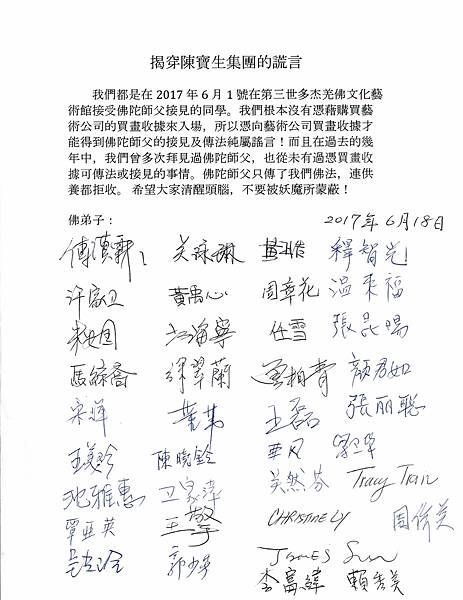 揭穿陳寶生集團的謊言
我們都是在 2017 年 6 月 1 號在第三世多杰羌佛文化藝
術館接受佛陀師父接見的同學。我們根本沒有憑藉購買藝
術公司的買畫收據來入場，所以憑向藝術公司買畫收據才
能得到佛陀師父的接見及傳法純屬謠言！而且在過去的幾
年中，我們曾多次拜見過佛陀師父，也從未有過憑買畫收
據可傳法或接見的事情。佛陀師父只傳了我們佛法，連供
養都拒收。 希望大家清醒頭腦，不要被妖魔所蒙蔽！
佛弟子：
2017年6月18日
吳詠琳 釋智光
許家卫 黃禹心 周葦花 溫來福
江海寧 任雪 張晶陽
繆翠蘭 曾柏青 顏君如
宋輝 王磊 張丽聪
王美珍 陳曉鈴 華風
沈雅惠 卫家萍 吴然芬 Tracy Tran
覃亚英 王擎 CHRISTINE LY 周倩美
郭少平 JAMES Sun
李富緯 賴秀美